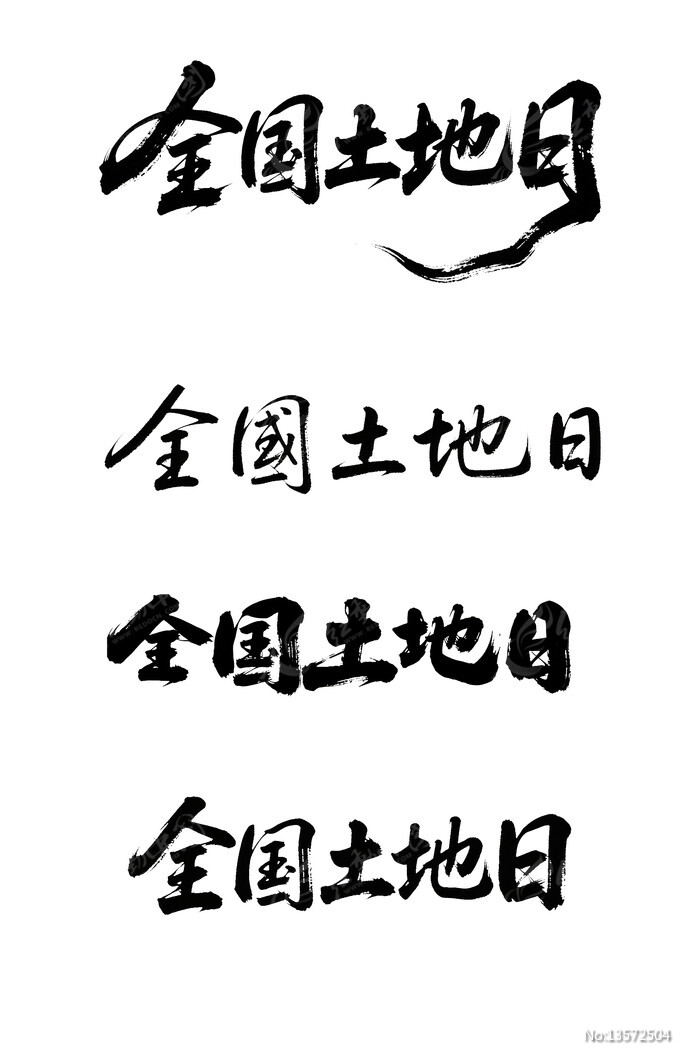 全国土地日
全國土地日
全国土地日
全国土地日
No:13572504